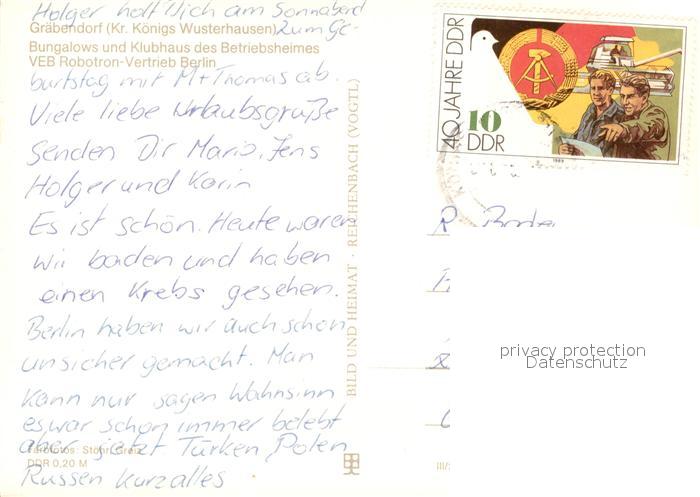 Holger holt Dich am Sonnabend
Gräbendorf (Kr. Königs Wusterhausen) zum Ge-
Bungalows und Klubhaus des Betriebsheimes
VEB Robotron-Vertrieb Berlin
burtstag mit M+Thomas ab.
Viele liebe Urlaubsgrüße
senden Dir Mario, Jens
Holger und Karin
Es ist schön. Heute waren
wir baden und haben
einen Krebs gesehen.
Berlin haben wir auch schon
unsicher gemacht. Man
kann nur sagen Wahnsinn
es war schon immer belebt
aber jetzt Türken, Polen
Farbfotos: Stöhr, Greiz
DDR 0,20 M
Russen kurz alles
BILD UND HEIMAT · REICHENBACH (VOGTL)
40 JAHRE DDR
10
DDR
1989
R
privacy protection
Datenschutz
III/